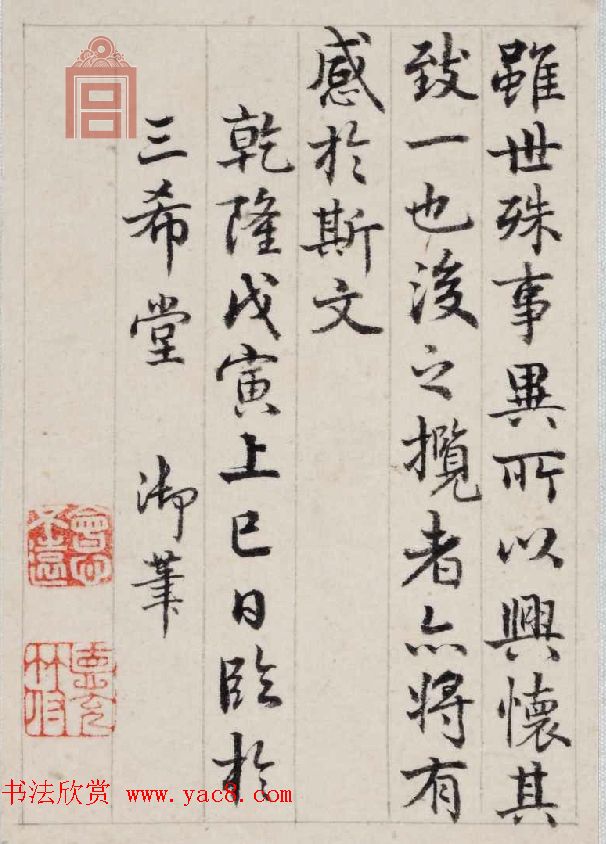 雖世殊事異所以興懷其
致一也後之攬者亦將有
感於斯文
乾隆戊寅上巳日臨於
三希堂 御筆
會心不遠
惪充符
书法欣赏 www.yac8.com